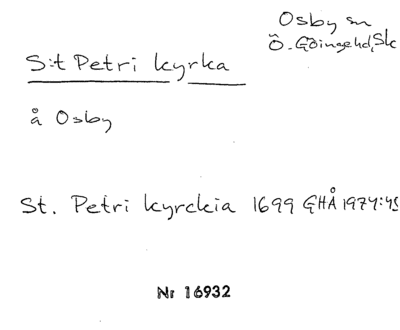 Osby sn
Ö. Göingehd, Sk
S:t Petri kyrka
å Osby
St. Petri kyrckia 1699 GHÅ 1974:45
Nr 16932